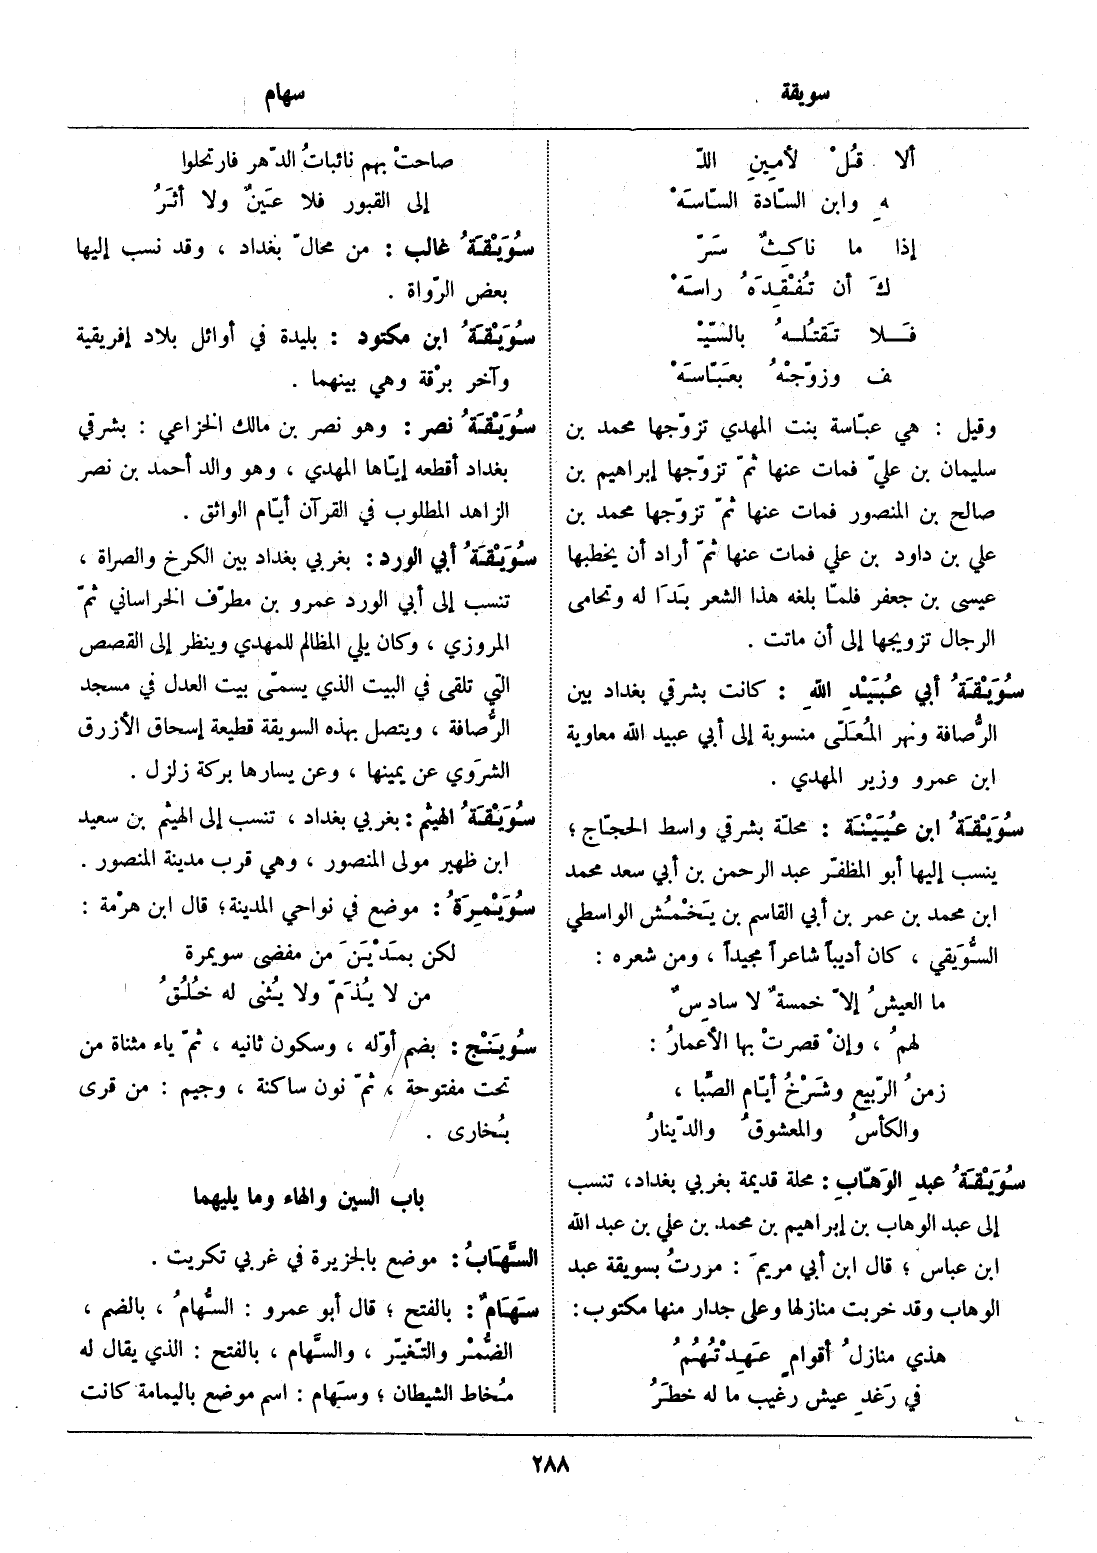 سويقة
سهام
ألا قُلْ لأمينِ اللّـ
ـهِ وابن السّادة السّاسَهْ
إذا ما ناكثٌ سَرّ
كَ أن تُفْقِدَهُ راسَهْ
فـلا تَقتُلـهُ بالسّيْـ
ـف وزوّجْهُ بعَبّاسَهْ
وقيل : هي عبّاسة بنت المهدي تزوّجها محمد بن
سليمان بن عليّ فمات عنها ثمّ تزوّجها إبراهيم بن
صالح بن المنصور فمات عنها ثمّ تزوّجها محمد بن
علي بن داود بن علي فمات عنها ثمّ أراد أن يخطبها
عيسى بن جعفر فلمّا بلغه هذا الشعر بَدَا له وتحامى
الرجال تزويجها إلى أن ماتت .
سُوَيْقَةُ أبي عُبَيْدِ اللهِ : كانت بشرقي بغداد بين
الرُّصافة ونهر المُعَلّى منسوبة إلى أبي عبيد الله معاوية
ابن عمرو وزير المهدي .
سُوَيْقَةُ ابن عُيَيْنَة : محلّة بشرقي واسط الحجّاج ؛
ينسب إليها أبو المظفّر عبد الرحمن بن أبي سعد محمد
ابن محمد بن عمر بن أبي القاسم بن يَخْمُش الواسطي
السُّوَيقي ، كان أديباً شاعراً مجيداً ، ومن شعره :
ما العيشُ إلاّ خمسةٌ لا سادِسٌ
لهمُ ، وإنْ قصرتْ بها الأعمارُ :
زمنُ الرّبيع وشَرْخُ أيّام الصِّبا ،
والكأسُ والمعشوقُ والدّينارُ
سُوَيْقَةُ عبدِ الوَهّابِ : محلة قديمة بغربي بغداد، تنسب
إلى عبد الوهاب بن إبراهيم بن محمد بن علي بن عبد الله
ابن عباس ؛ قال ابن أبي مريمَ : مررتُ بسويقة عبد
الوهاب وقد خربت منازلها وعلى جدار منها مكتوب :
هذي منازلُ أقوامٍ عَهِدْتُهُمُ
في رَغدِ عيش رغيب ما له خطَرُ
صاحتْ بهم نائباتُ الدّهر فارتحلوا
إلى القبور فلا عَينٌ ولا أثَرُ
سُوَيْقَةُ غالب : من محالّ بغداد ، وقد نسب إليها
بعض الرّواة .
سُوَيْقَةُ ابن مكتود : بليدة في أوائل بلاد إفريقية
وآخر برْقة وهي بينهما .
سُوَيْقَةُ نصر : وهو نصر بن مالك الخزاعي : بشرقي
بغداد أقطعه إيّاها المهدي ، وهو والد أحمد بن نصر
الزاهد المطلوب في القرآن أيّام الواثق .
سُوَيْقَةُ أبي الورد : بغربي بغداد بين الكرخ والصراة ،
تنسب إلى أبي الورد عمرو بن مطرّف الخراساني ثمّ
المروزي ، وكان يلي المظالم للمهدي وينظر إلى القصص
التي تلقى في البيت الذي يسمّى بيت العدل في مسجد
الرُّصافة ، ويتصل بهذه السويقة قطيعة إسحاق الأزرق
الشرَوي عن يمينها ، وعن يسارها بركة زلزل .
سُوَيْقَةُ الهيثم : بغربي بغداد ، تنسب إلى الهيثم بن سعيد
ابن ظهير مولى المنصور ، وهي قرب مدينة المنصور .
سُوَيْمِرَةُ : موضع في نواحي المدينة ؛ قال ابن هرْمة :
لكن بمَدْيَنَ من مفضى سويمرة
من لا يُذَمّ ولا يُثنى له خُلُقُ
سُويَنْج : بضم أوّله ، وسكون ثانيه ، ثمّ ياء مثناة من
تحت مفتوحة ، ثمّ نون ساكنة ، وجيم : من قرى
بُخارى .
باب السين والهاء وما يليهما
السَّهَابُ : موضع بالجزيرة في غربي تكريت .
سَهَامٌ : بالفتح ؛ قال أبو عمرو : السُّهامُ ، بالضم ،
الضُّمْر والتّغيّر ، والسَّهام ، بالفتح : الذي يقال له
مُخاط الشيطان ؛ وسَهام : اسم موضع باليمامة كانت
٢٨٨